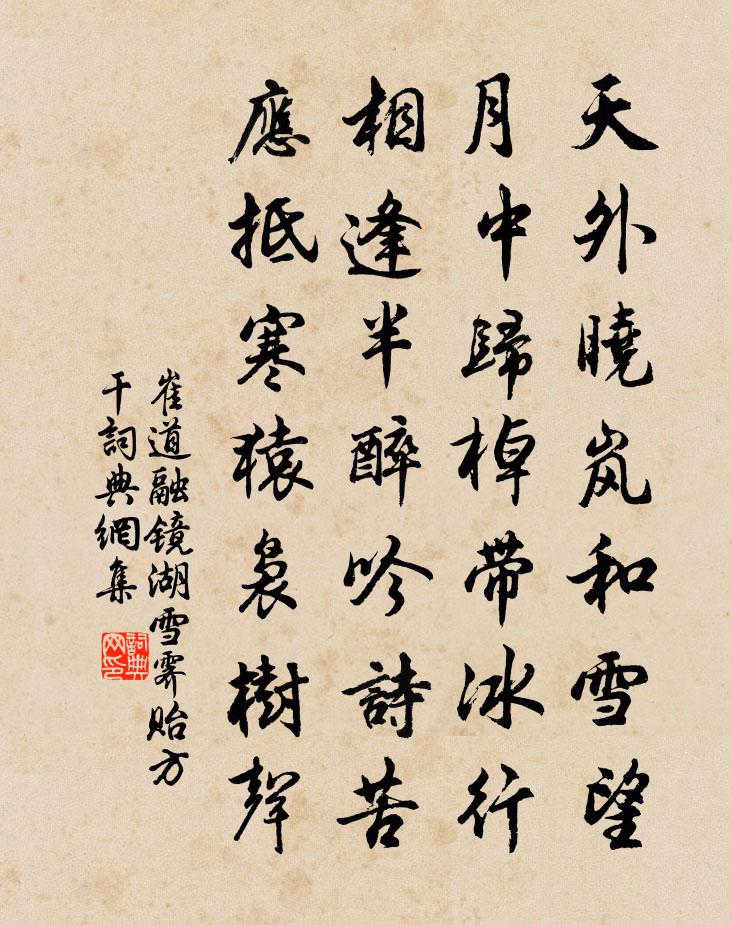 天外曉岚和雪望
月中歸棹带冰行
相逢半醉吟詩苦
應抵寒猿裊樹聲
崔道融鏡湖雪霽貽方
干詞典網集
詞典
网印